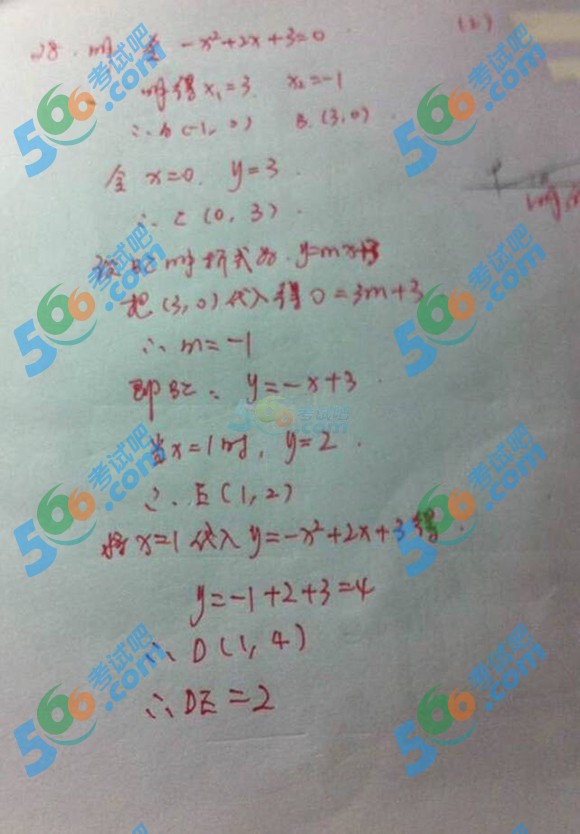 28. 解: 令 -x²+2x+3=0
(2)
解得 x₁=3. x₂=-1
∴ A(-1, 0) B.(3,0).
令 x=0. y=3.
∴ C(0, 3).
设BC解析式为. y=mx+3
把(3,0)代入得 0=3m+3
∴ m=-1
即BC: y=-x+3.
当x=1时, y=2.
∴ E(1,2)
将x=1代入y=-x²+2x+3得.
y=-1+2+3=4
∴ D(1,4)
∴ DE=2
566考试吧
.com